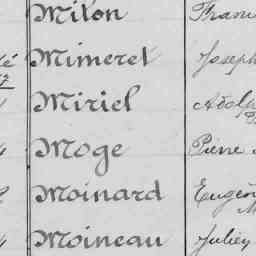 Milon Fran
Mimeret Joseph
Miriel Adolp
Moge Pierre
Moinard Eugèn
Moineau Julien